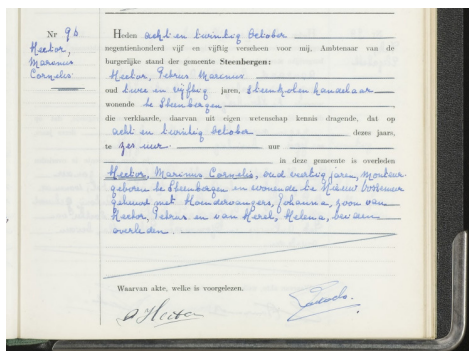 Nr 96
Hector,
Marinus
Cornelis
Heden acht en twintig October
negentienhonderd vijf en vijftig verscheen voor mij, Ambtenaar van de
burgerlijke stand der gemeente Steenbergen:
Hector, Petrus Marinus
oud twee en vijftig jaren, steenkolenhandelaar
wonende te Steenbergen,
die verklaarde, daarvan uit eigen wetenschap kennis dragende, dat op
acht en twintig october dezes jaars,
te zes uur uur
in deze gemeente is overleden
Hector, Marinus Cornelis, oud veertig jaren, monteur
geboren te Steenbergen en wonende te Nieuw Vossemeer
gehuwd met Hoendervangers, Johanna, zoon van
Hector, Petrus en van Herel, Helena, beiden
overleden.
Waarvan akte, welke is voorgelezen.
Hector